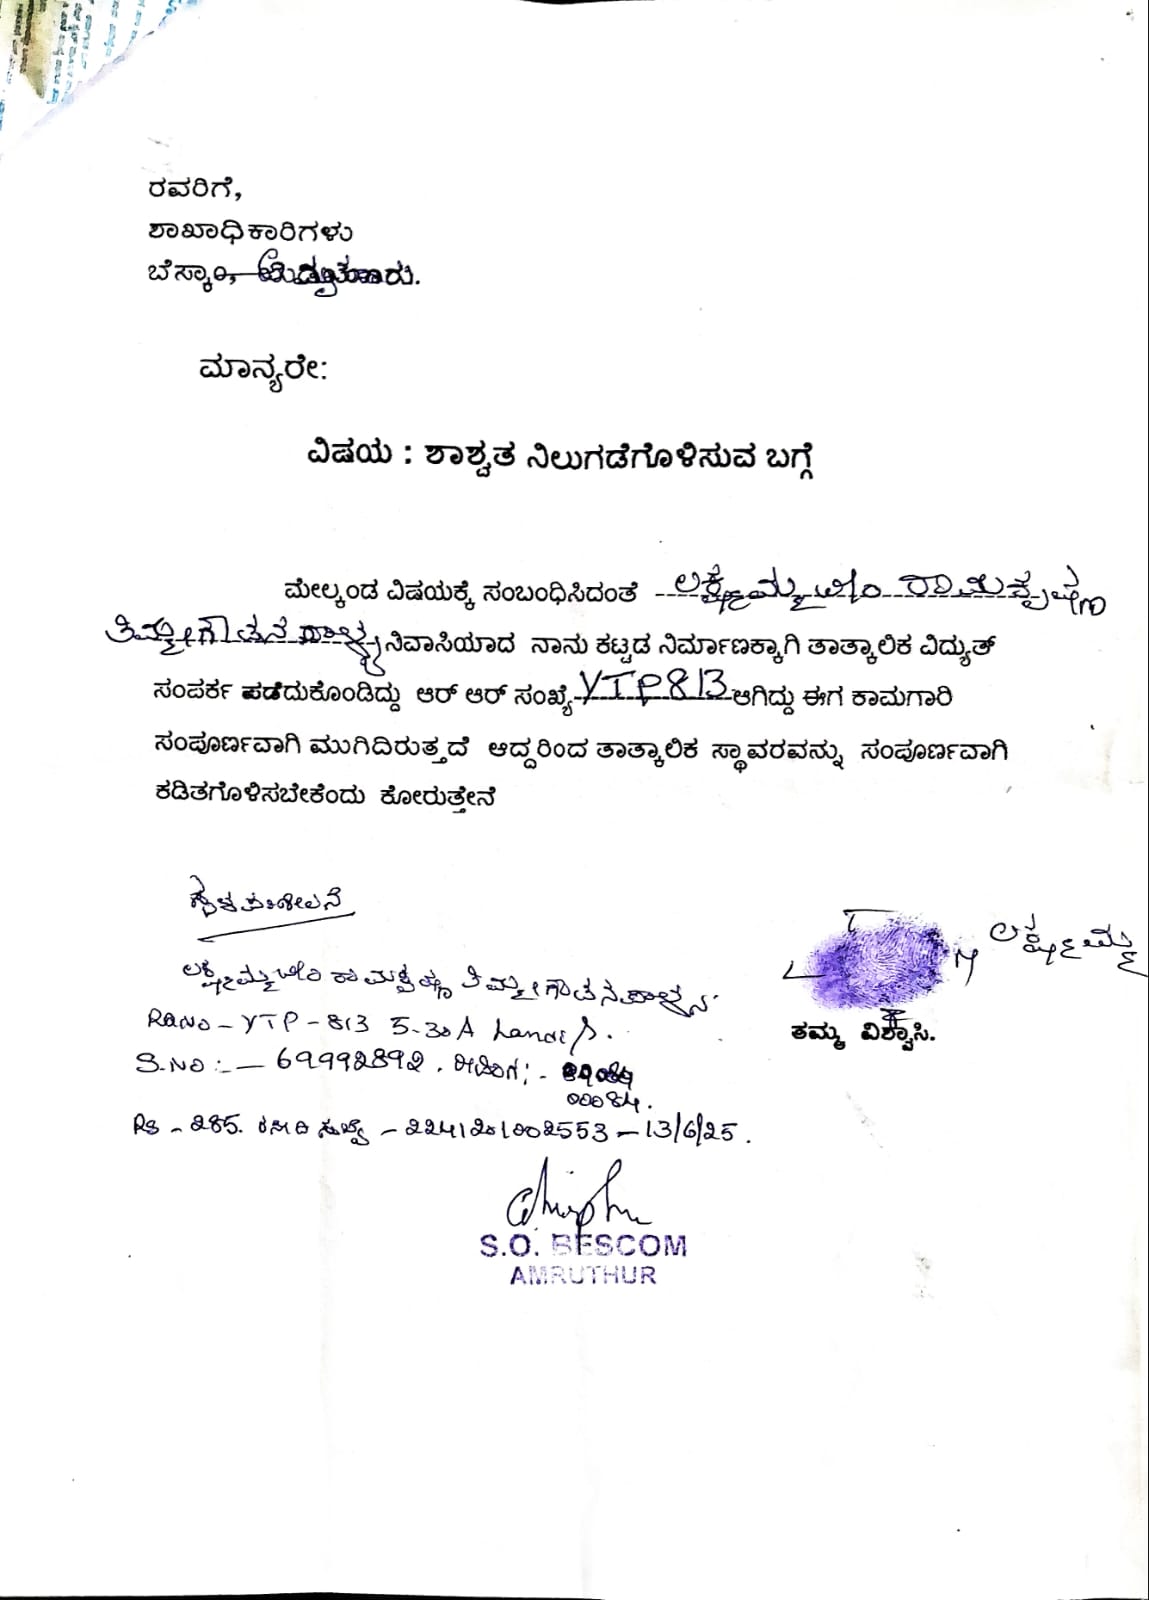 ರವರಿಗೆ,
ಶಾಖಾಧಿಕಾರಿಗಳು
ಬೆಸ್ಕಾಂ,
ಮಾನ್ಯರೇ:
ವಿಷಯ : ಶಾಶ್ವತ ನಿಲುಗಡೆಗೊಳಿಸುವ ಬಗ್ಗೆ
ಮೇಲ್ಕಂಡ ವಿಷಯಕ್ಕೆ ಸಂಬಂಧಿಸಿದಂತೆ ಲಕ್ಷ್ಮಮ್ಮ ಕೋಂ ರಾಮಕೃಷ್ಣ
ತಿಮ್ಮೇಗೌಡನ ಪಾಳ್ಯ ನಿವಾಸಿಯಾದ ನಾನು ಕಟ್ಟಡ ನಿರ್ಮಾಣಕ್ಕಾಗಿ ತಾತ್ಕಾಲಿಕ ವಿದ್ಯುತ್
ಸಂಪರ್ಕ ಪಡೆದುಕೊಂಡಿದ್ದು ಆರ್ ಆರ್ ಸಂಖ್ಯೆ YTP813 ಆಗಿದ್ದು ಈಗ ಕಾಮಗಾರಿ
ಸಂಪೂರ್ಣವಾಗಿ ಮುಗಿದಿರುತ್ತದೆ ಆದ್ದರಿಂದ ತಾತ್ಕಾಲಿಕ ಸ್ಥಾವರವನ್ನು ಸಂಪೂರ್ಣವಾಗಿ
ಕಡಿತಗೊಳಿಸಬೇಕೆಂದು ಕೋರುತ್ತೇನೆ
ಸ್ಥಳ ಪರಿಶೀಲನೆ
ಲಕ್ಷ್ಮಮ್ಮ
ತಮ್ಮ ವಿಶ್ವಾಸಿ.
ಲಕ್ಷ್ಮಮ್ಮ ಕೋಂ ರಾಮಕೃಷ್ಣ ತಿಮ್ಮೇಗೌಡನಪಾಳ್ಯ
RRNO - YTP - 813 5-30 A
S.NO :- 69992892.
00084.
Rs - 285. ರಸೀದಿ ಸಂಖ್ಯೆ - 2241201002553 - 13/6/25.
S.O. BESCOM
AMRUTHUR